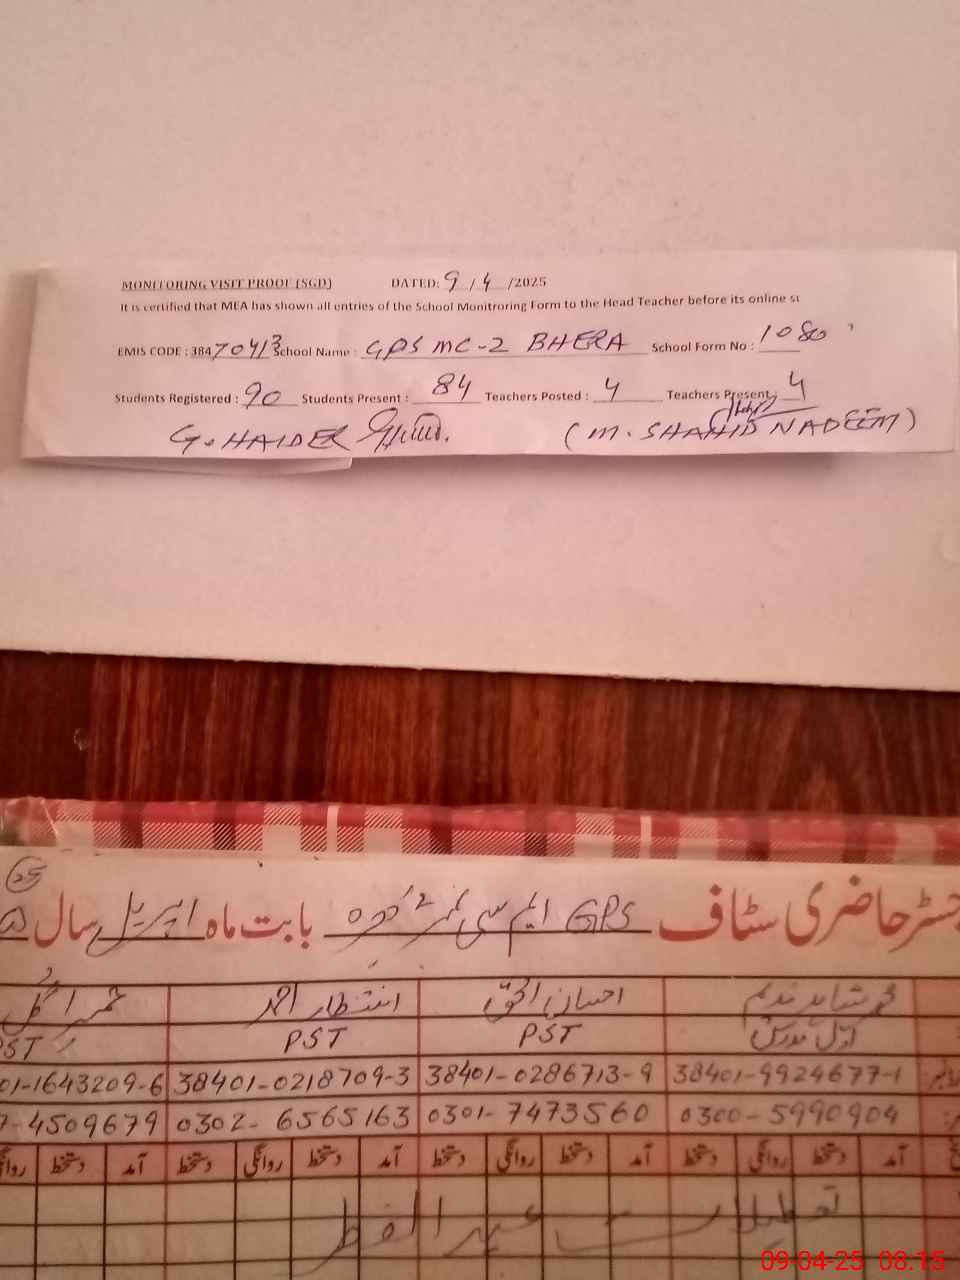 MONITORING VISIT PROOF (SGD) DATED: 9 / 4 /2025
It is certified that MEA has shown all entries of the School Monitroring Form to the Head Teacher before its online
EMIS CODE : 38470413 School Name : GPS MC-2 BHERA School Form No : 1080
Students Registered : 90 Students Present : 84 Teachers Posted : 4 Teachers Present : 4
G. HAIDER (M. SHAHID NADEEM)
25
جسٹر حاضری سٹاف GPS ایم سی نمبر 2 بابت ماہ اپریل سال
محمد شاہد ندیم احسان الحق انتظار احمد
اول مدرس PST PST PST
38401-9924677-1 38401-0286713-9 38401-0218709-3 01-1643209-6
0300-5990904 0301-7473560 0302-6565163 7-4509679
آمد دستخط روانگی دستخط آمد دستخط روانگی دستخط آمد دستخط روانگی دستخط آمد دستخط روانگی
تعطیلات عید الفطر
09-04-25 08:15